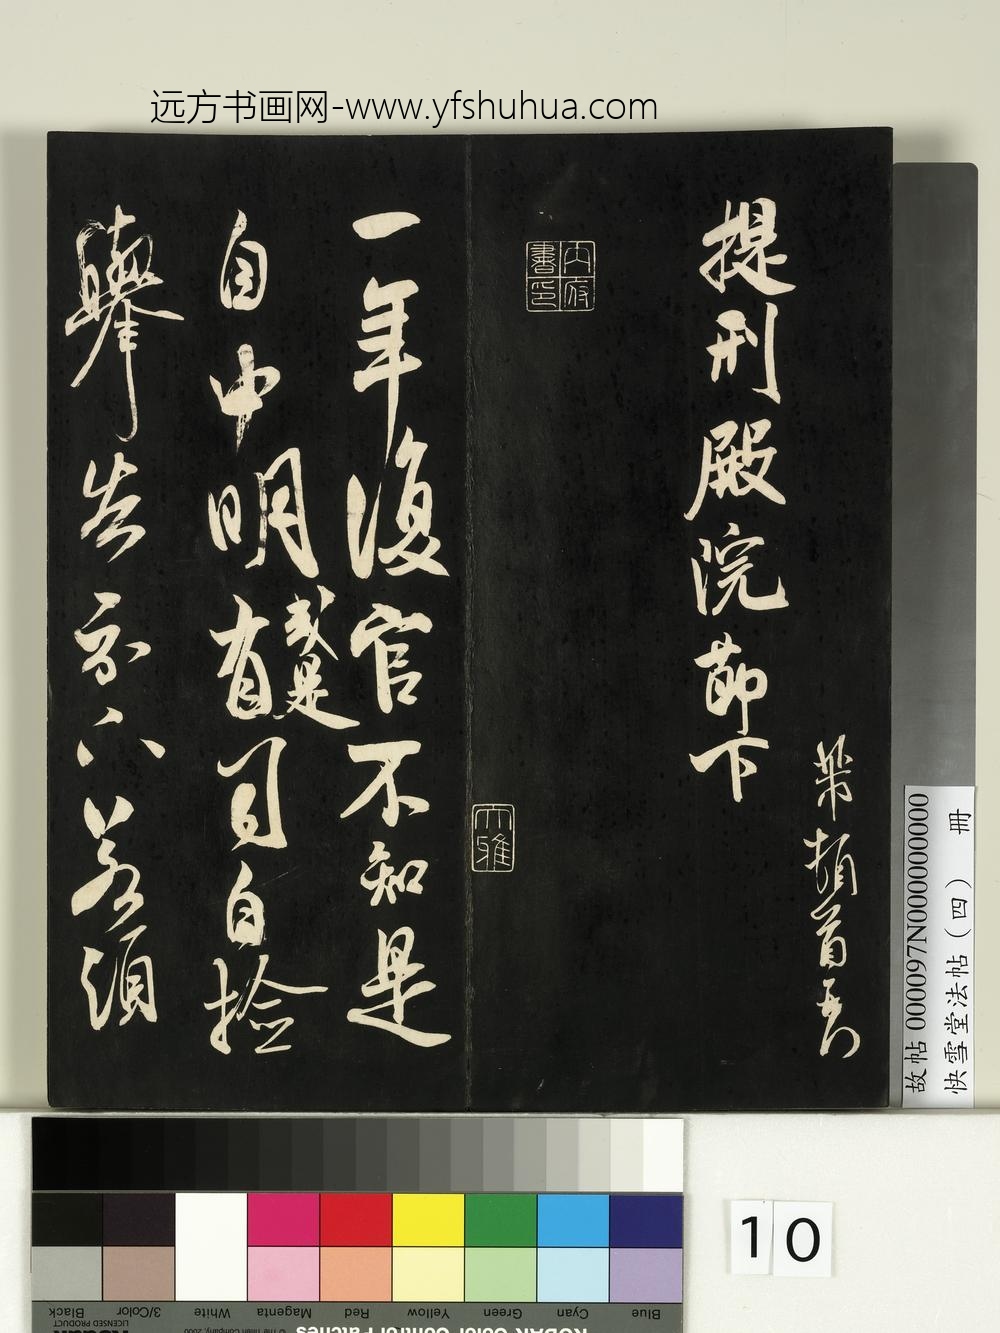 远方书画网-www.yfshuhua.com
黻頓首再拜
提刑殿院節下
内府書印
大雅
一年復官不知是
自中明有
或是
司自捡
舉告示下若須
故帖 000097N000000000
快雪堂法帖（四） 冊
10
Blue
Cyan
Green
Yellow
Red
Magenta
White
3/Color
Black
KODAK Color Control Patches
© The Tiffen Company, 2000
Kodak
LICENSED PRODUCT